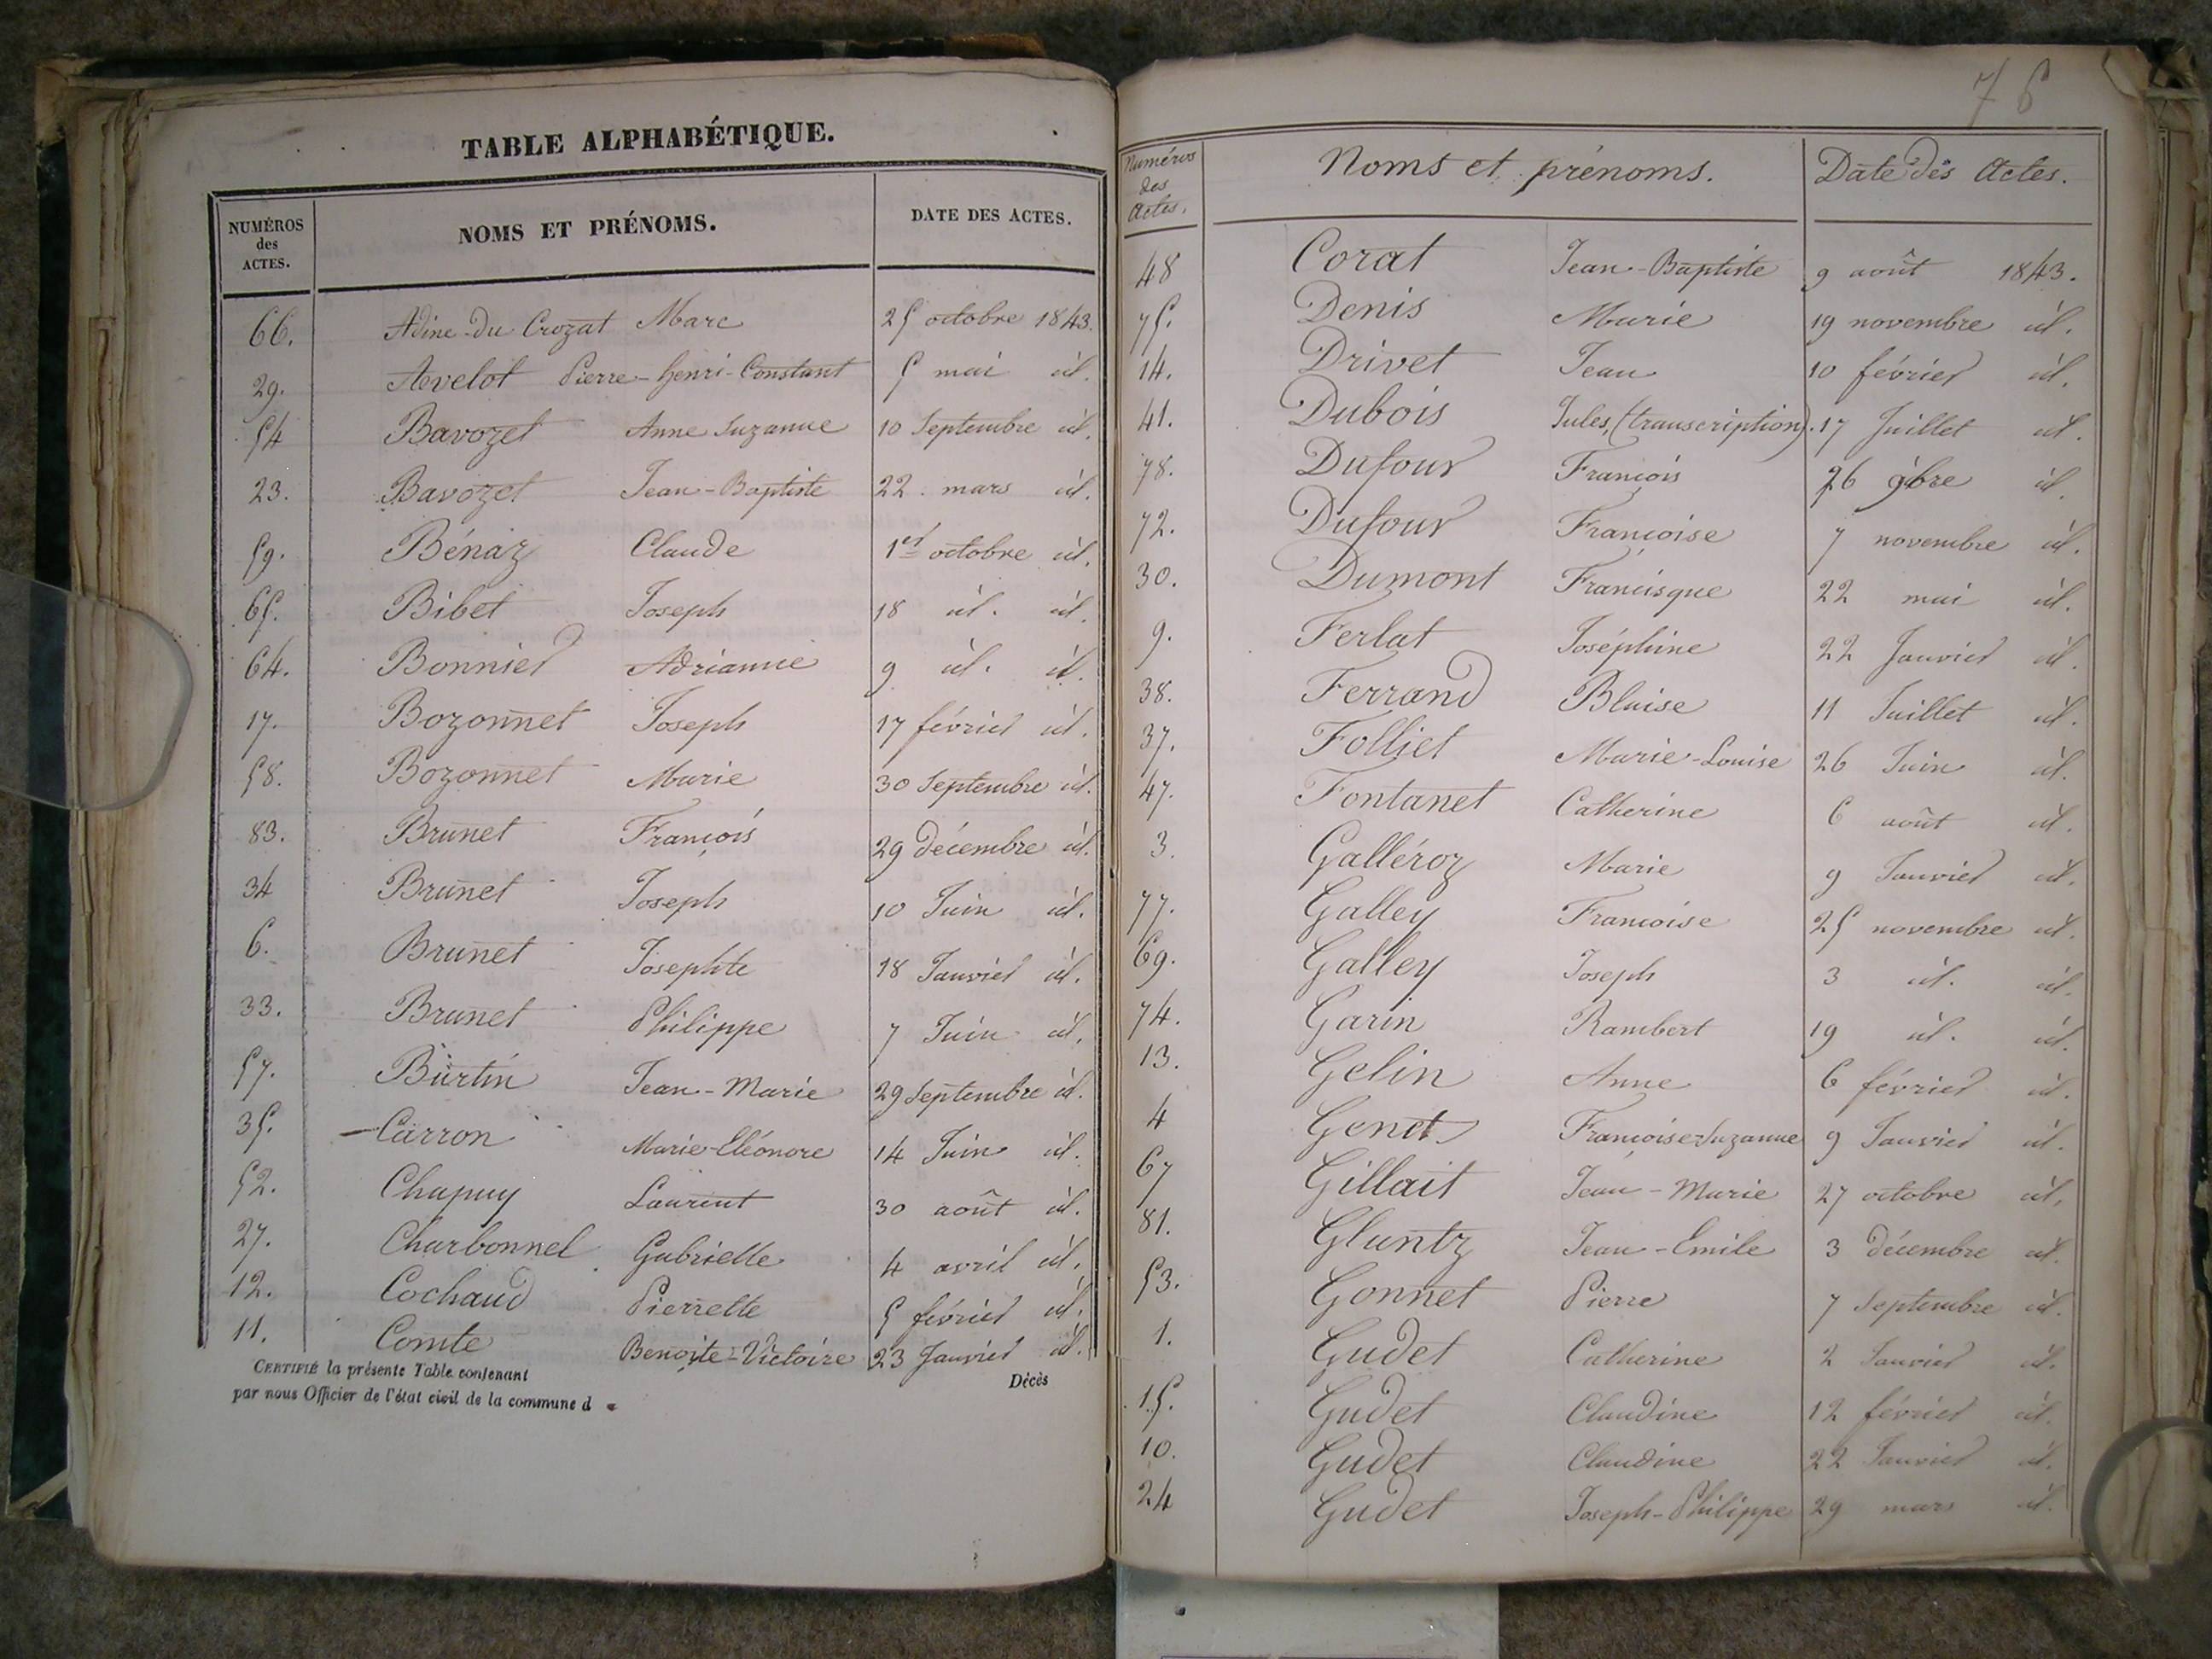 TABLE ALPHABÉTIQUE.
NUMÉROS des ACTES. NOMS ET PRÉNOMS. DATE DES ACTES.
66. Adine-du Crozat Marc 25 octobre 1843.
29. Aevelot Pierre-henri-Constant 5 mai id.
54 Bavozet Anne Suzanne 10 Septembre id.
23. Bavozet Jean-Baptiste 22 mars id.
59. Bénaz Claude 1er octobre id.
65. Bibet Joseph 18 id. id.
64. Bonnier Adrianne 9 id. id.
17. Bozonnet Joseph 17 février id.
58. Bozonnet Marie 30 Septembre id.
83. Brunet François 29 décembre id.
34 Brunet Joseph 10 Juin id.
6. Brunet Josephte 18 Janvier id.
33. Brunet Philippe 7 Juin id.
57. Burtin Jean-Marie 29 Septembre id.
35. Carron Marie-Eléonore 14 Juin id.
52. Chapuy Laurent 30 août id.
27. Charbonnel Gabrielle 4 avril id.
12. Cochaud Pierrette 5 février id.
11. Comte Benoite-Victoire 23 Janvier id.
CERTIFIÉ la présente Table contenant Décès
par nous Officier de l'état civil de la commune d
76
Numéros des Actes. Noms et prénoms. Date des Actes.
48 Corat Jean-Baptiste 9 août 1843.
75. Denis Marie 19 novembre id.
14. Drivet Jean 10 février id.
41. Dubois Jules, (transcription). 17 Juillet id.
78. Dufour François 26 9bre id.
72. Dufour Françoise 7 novembre id.
30. Dumont Francisque 22 mai id.
9. Ferlat Joséphine 22 Janvier id.
38. Ferrand Blaise 11 Juillet id.
37. Folliet Marie-Louise 26 Juin id.
47. Fontanet Catherine 6 août id.
3. Galléroz Marie 9 Janvier id.
77. Galley Francoise 25 novembre id.
69. Galley Joseph 3 id. id.
74. Garin Rambert 19 id. id.
13. Gelin Anne 6 février id.
4 Genet Françoise-Suzanne 9 Janvier id.
67 Gillait Jean-Marie 27 octobre id.
81. Gluntz Jean-Emile 3 décembre id.
53. Gonnet Pierre 7 Septembre id.
1. Gudet Catherine 2 Janvier id.
15. Gudet Claudine 12 février id.
10. Gudet Claudine 22 Janvier id.
24 Gudet Joseph-Philippe 29 mars id.